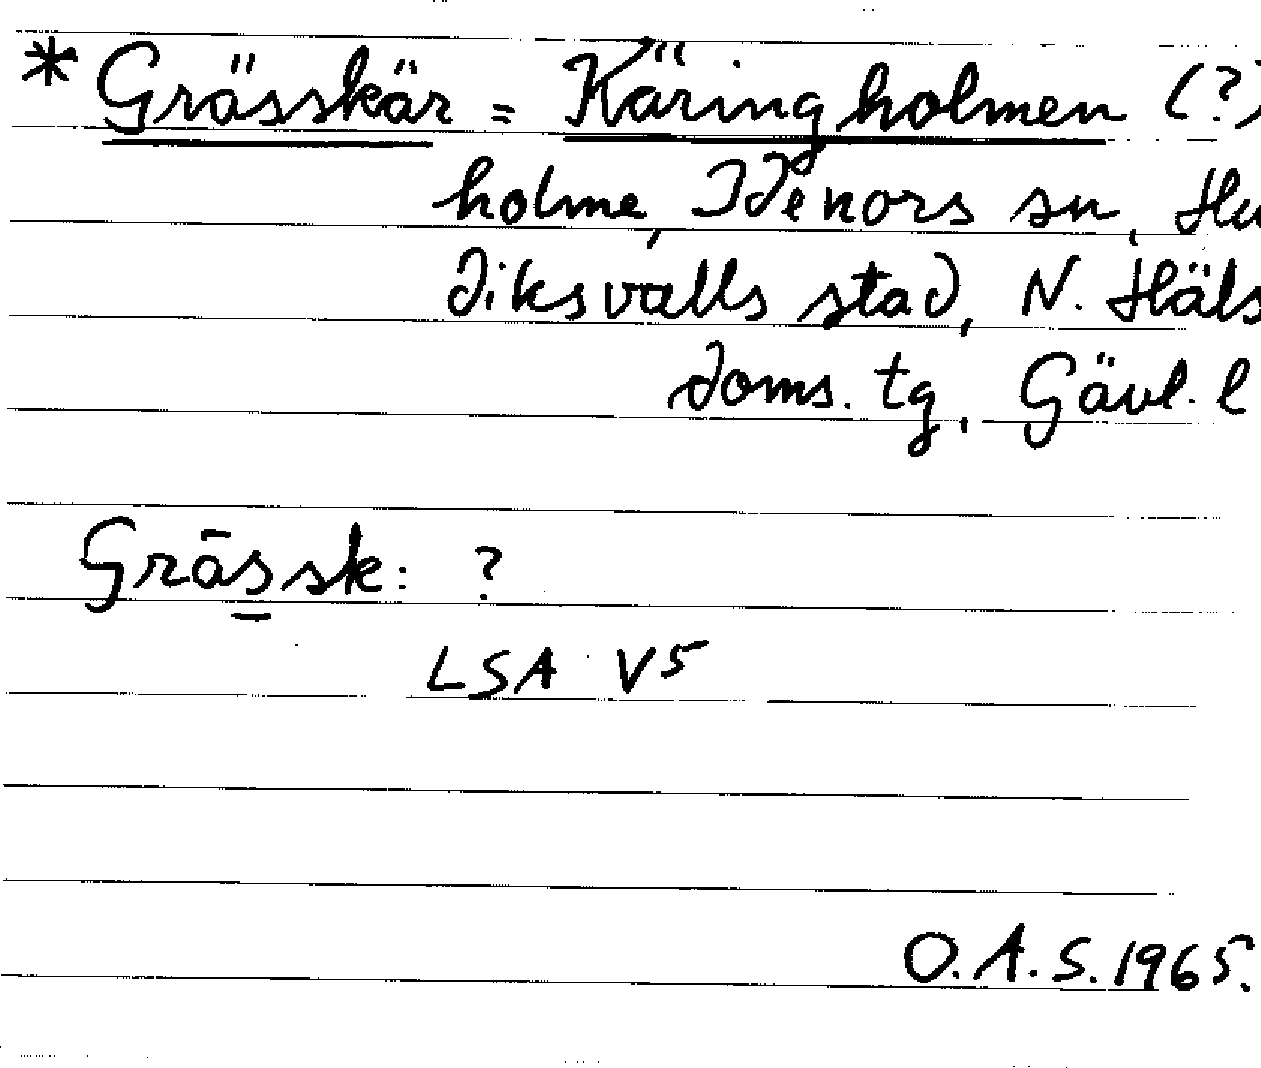 * Grässkär = Käringholmen (?)
holme, Idenors sn, Hu
diksvalls stad, N. Häls
doms. tg, Gävl. l
Grässk: ?
LSA V5
O.A.S. 1965.